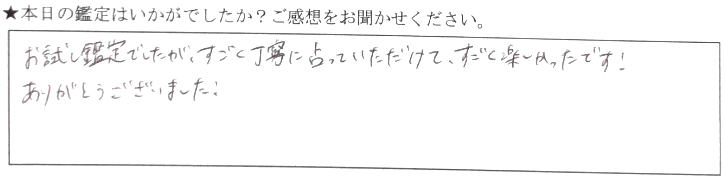 ★本日の鑑定はいかがでしたか？ご感想をお聞かせください。
お試し鑑定でしたが、すごく丁寧に占っていただけて、すごく楽しかったです！
ありがとうございました！